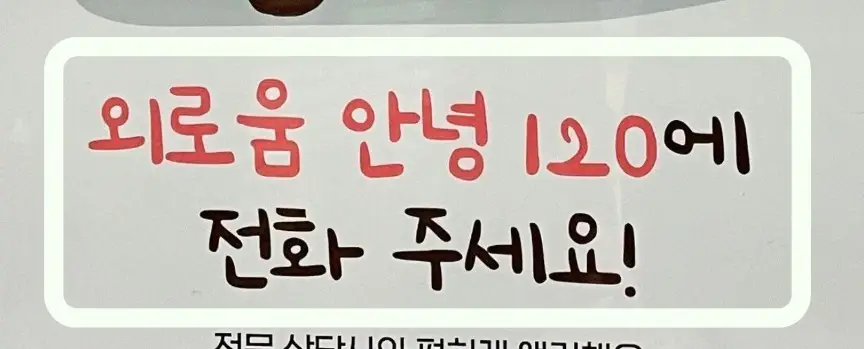 외로움 안녕 120에
전화 주세요!